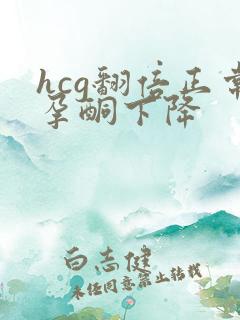 hcg翻倍正常
孕酮下降
白志健
未经同意禁止转载